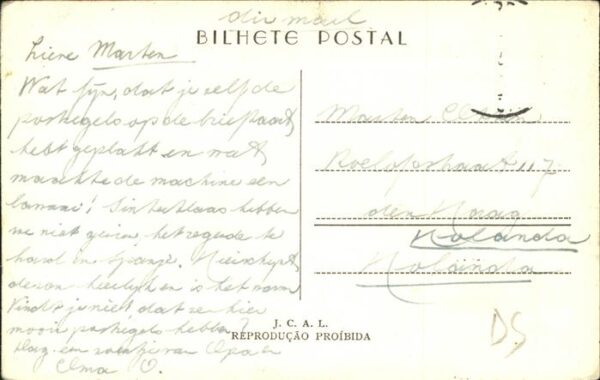 air mail
BILHETE POSTAL
Lieve Marten
Wat fijn, dat je zelf de
postzegels op de briefkaart
hebt geplakt en wat
maakte de machine een
lawaai! Sinterklaas hebben
we niet gezien, het regende te
hard in Spanje. Hier schijnt
de zon heerlijk en is het warm
Vindt je niet dat ze hier
mooie postzegels hebben?
Dag, een van Opa en
Oma O.
Marten
Roelofstraat 117
den Haag
Holanda
Holanda
J. C. A. L.
REPRODUÇÃO PROÍBIDA
DS